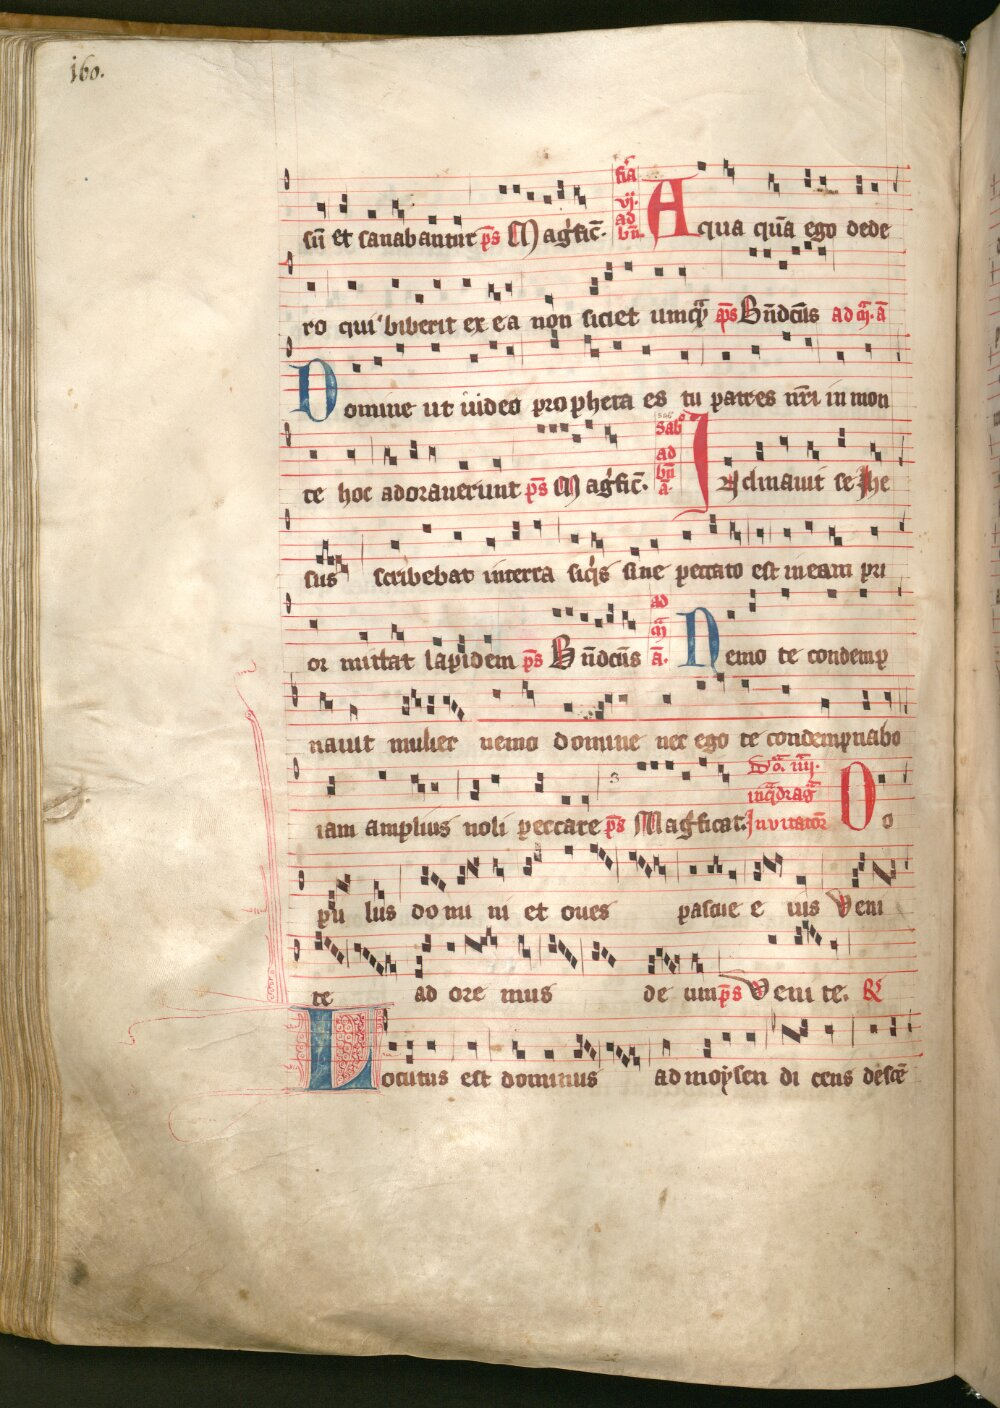 160.
sū et sanabantur p̄s Mag̓fic̄. fīa vj. ad bn̄. Aqua quā ego dede
ro qui biberit ex ea non siciet umqᷓ p̄s Bn̄dcūs ad m̄. ā
Domine ut uideo propheta es tu patres nr̄i in mon
te hoc adorauerunt p̄s Mag̓fic̄. Sabᵒ ad bn̄ ā Inclinauit se Ihe
sus scribebat in terra siq̓s sine peccato est in eam pri
or mittat lapidem p̄s Bn̄dcūs ad m̄ ā. Nemo te condemp
nauit mulier nemo domine nec ego te condempnabo
iam amplius noli peccare p̄s Mag̓ficat. Dōᵃ. iiijᵃ. in q̄drag̓ Inuitatoꝝ Po
pu lus domi ni et oues pascue e ius Veni
te ad ore mus de um p̄s Veni te. R̷
Locutus est dominus ad moysen di cens descē